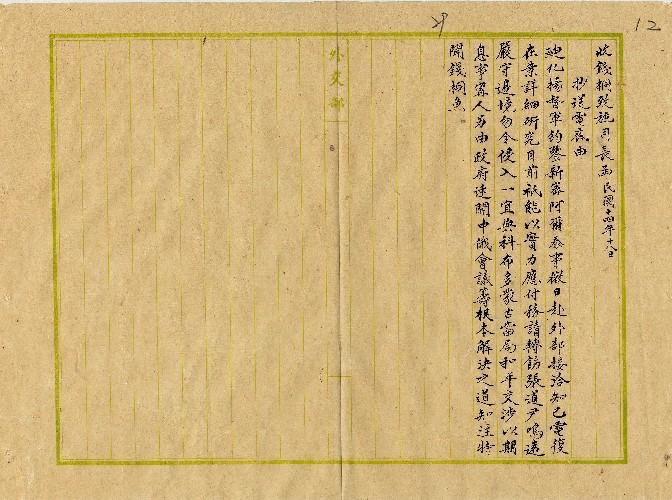 12
收錢桐號施司長函 民國十四年十八日
抄送電底由
迪化楊督軍鈞鑒新密阿爾泰事擬日赴外部接洽知已電復
在案詳細研究目前祇能以實力應付務請轉飭張道尹鳴遠
嚴守邊境勿令侵入一宜與科布多蒙古當局和平交涉以期
息事寧人另由政府速開中俄會議籌根本解決之道知注特
聞錢桐魚
外交部